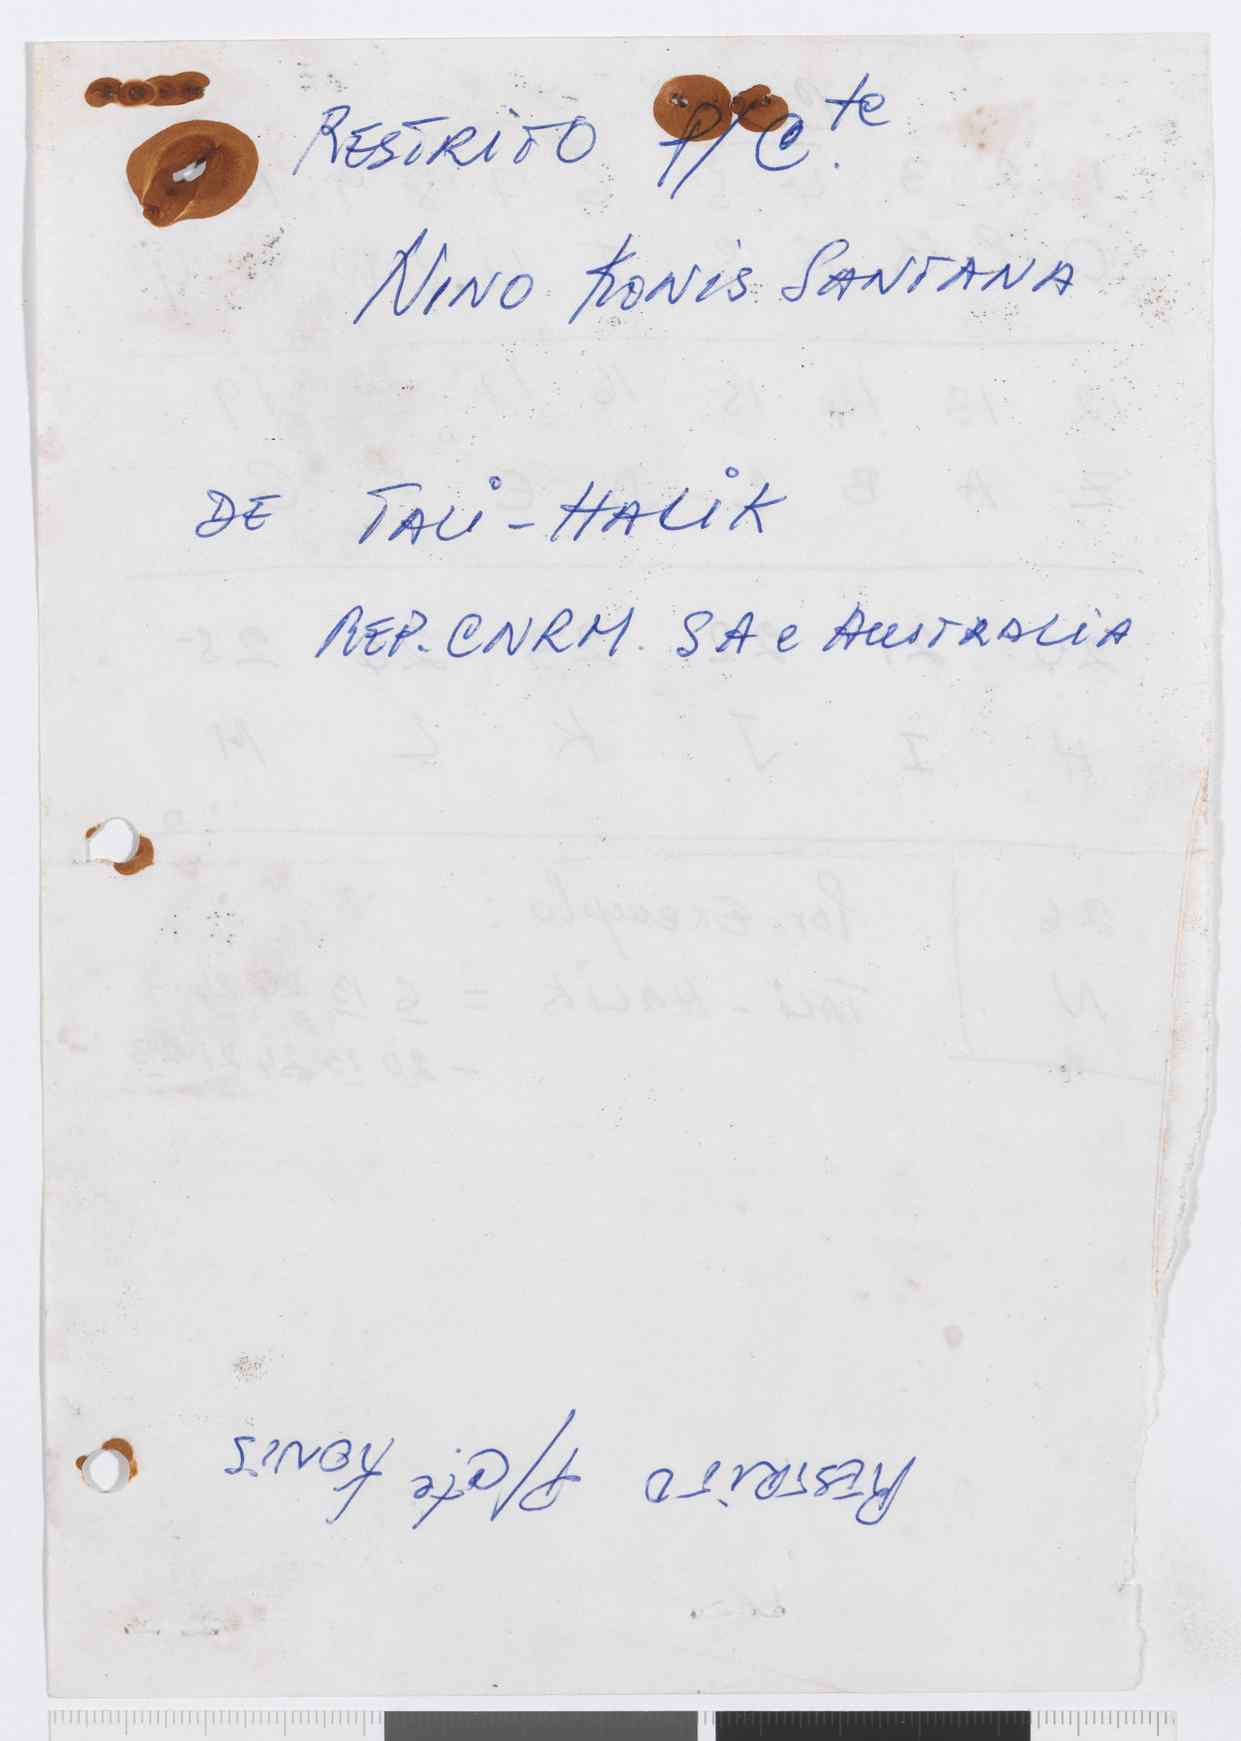 RESTRITO P/C.te
NINO KONIS SANTANA
DE TALI-HALIK
REP. CNRM. SA e AUSTRALIA
RESTRITO P/C.te KONIS